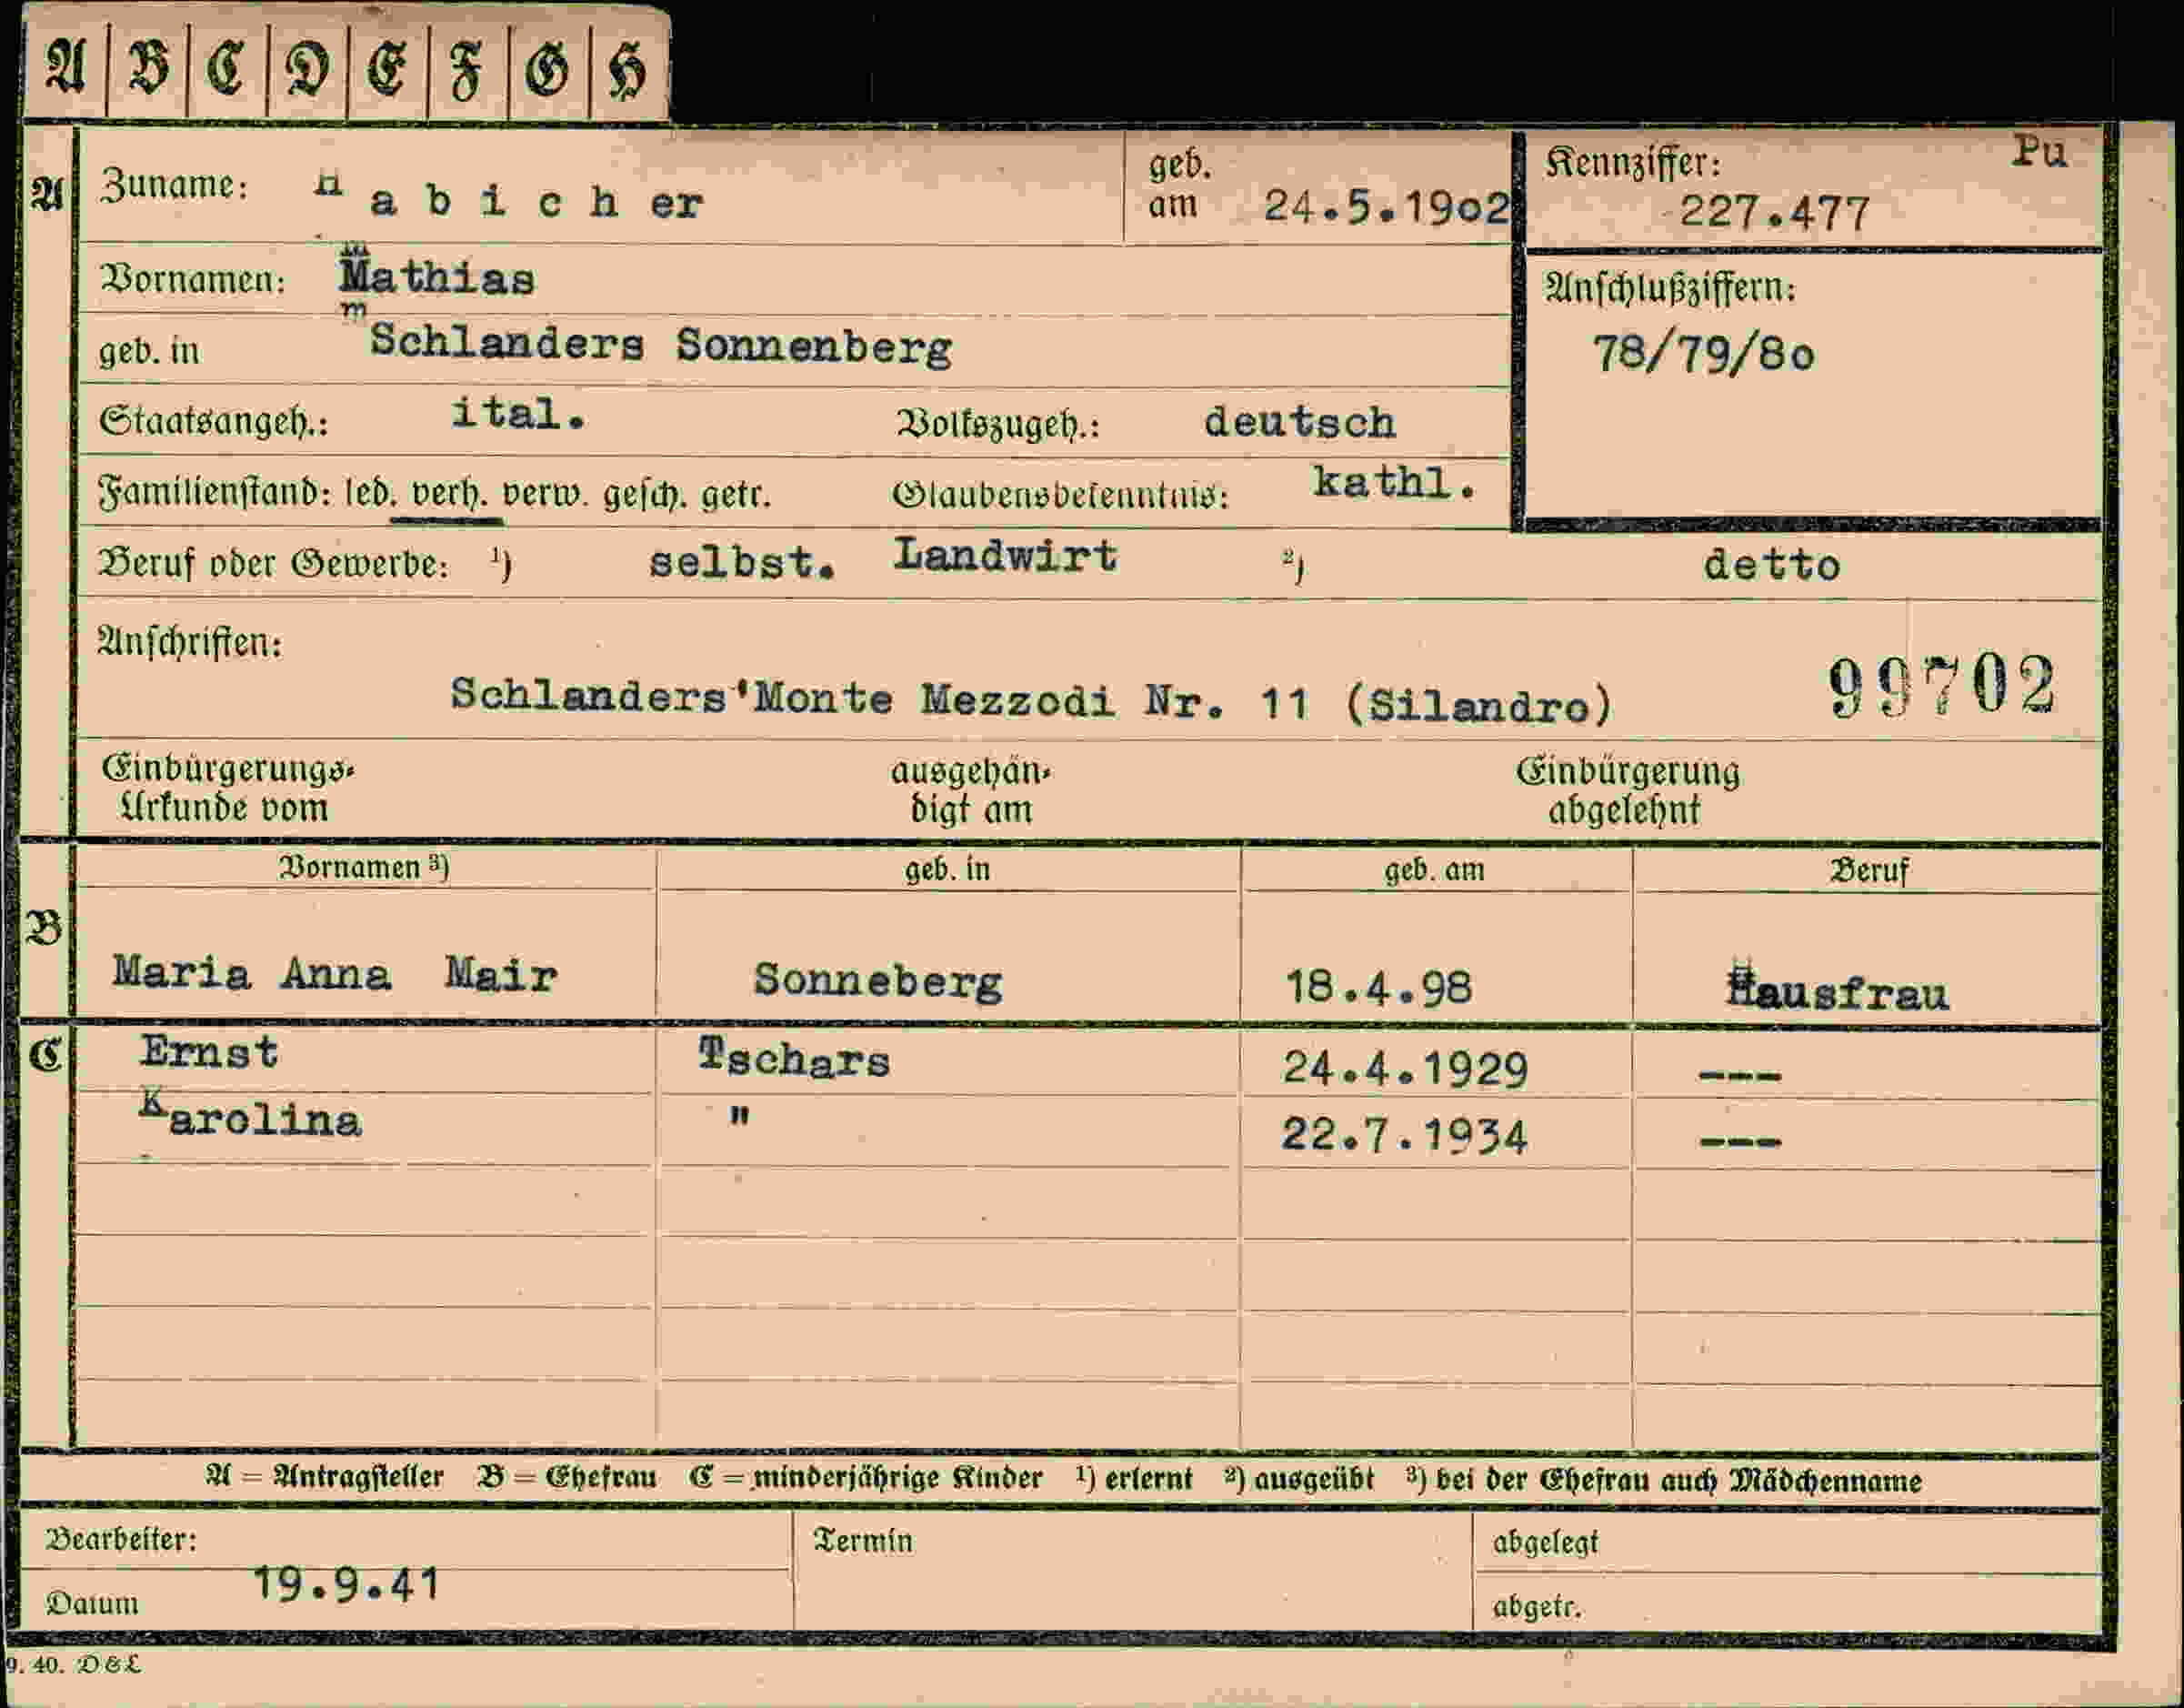 A B C D E F G H
A Zuname: Habicher geb. am 24.5.1902 Kennziffer: 227.477 Pu
Vornamen: Mathias
Anschlußziffern: 78/79/80
geb. in Schlanders Sonnenberg
Staatsangeh.: ital. Volkszugeh.: deutsch
Familienstand: led. verh. verw. gesch. getr. Glaubensbekenntnis: kathl.
Beruf oder Gewerbe: 1) selbst. Landwirt 2) detto
Anschriften:
Schlanders'Monte Mezzodi Nr. 11 (Silandro) 99702
Einbürgerungs- ausgehän- Einbürgerung
Urkunde vom digt am abgelehnt
Vornamen 3) geb. in geb. am Beruf
B
Maria Anna Mair Sonneberg 18.4.98 Hausfrau
C Ernst Tschars 24.4.1929 ---
Karolina " 22.7.1934 ---
A = Antragsteller B = Ehefrau C = minderjährige Kinder 1) erlernt 2) ausgeübt 3) bei der Ehefrau auch Mädchenname
Bearbeiter: Termin abgelegt
Datum 19.9.41 abgetr.
9. 40. D & L